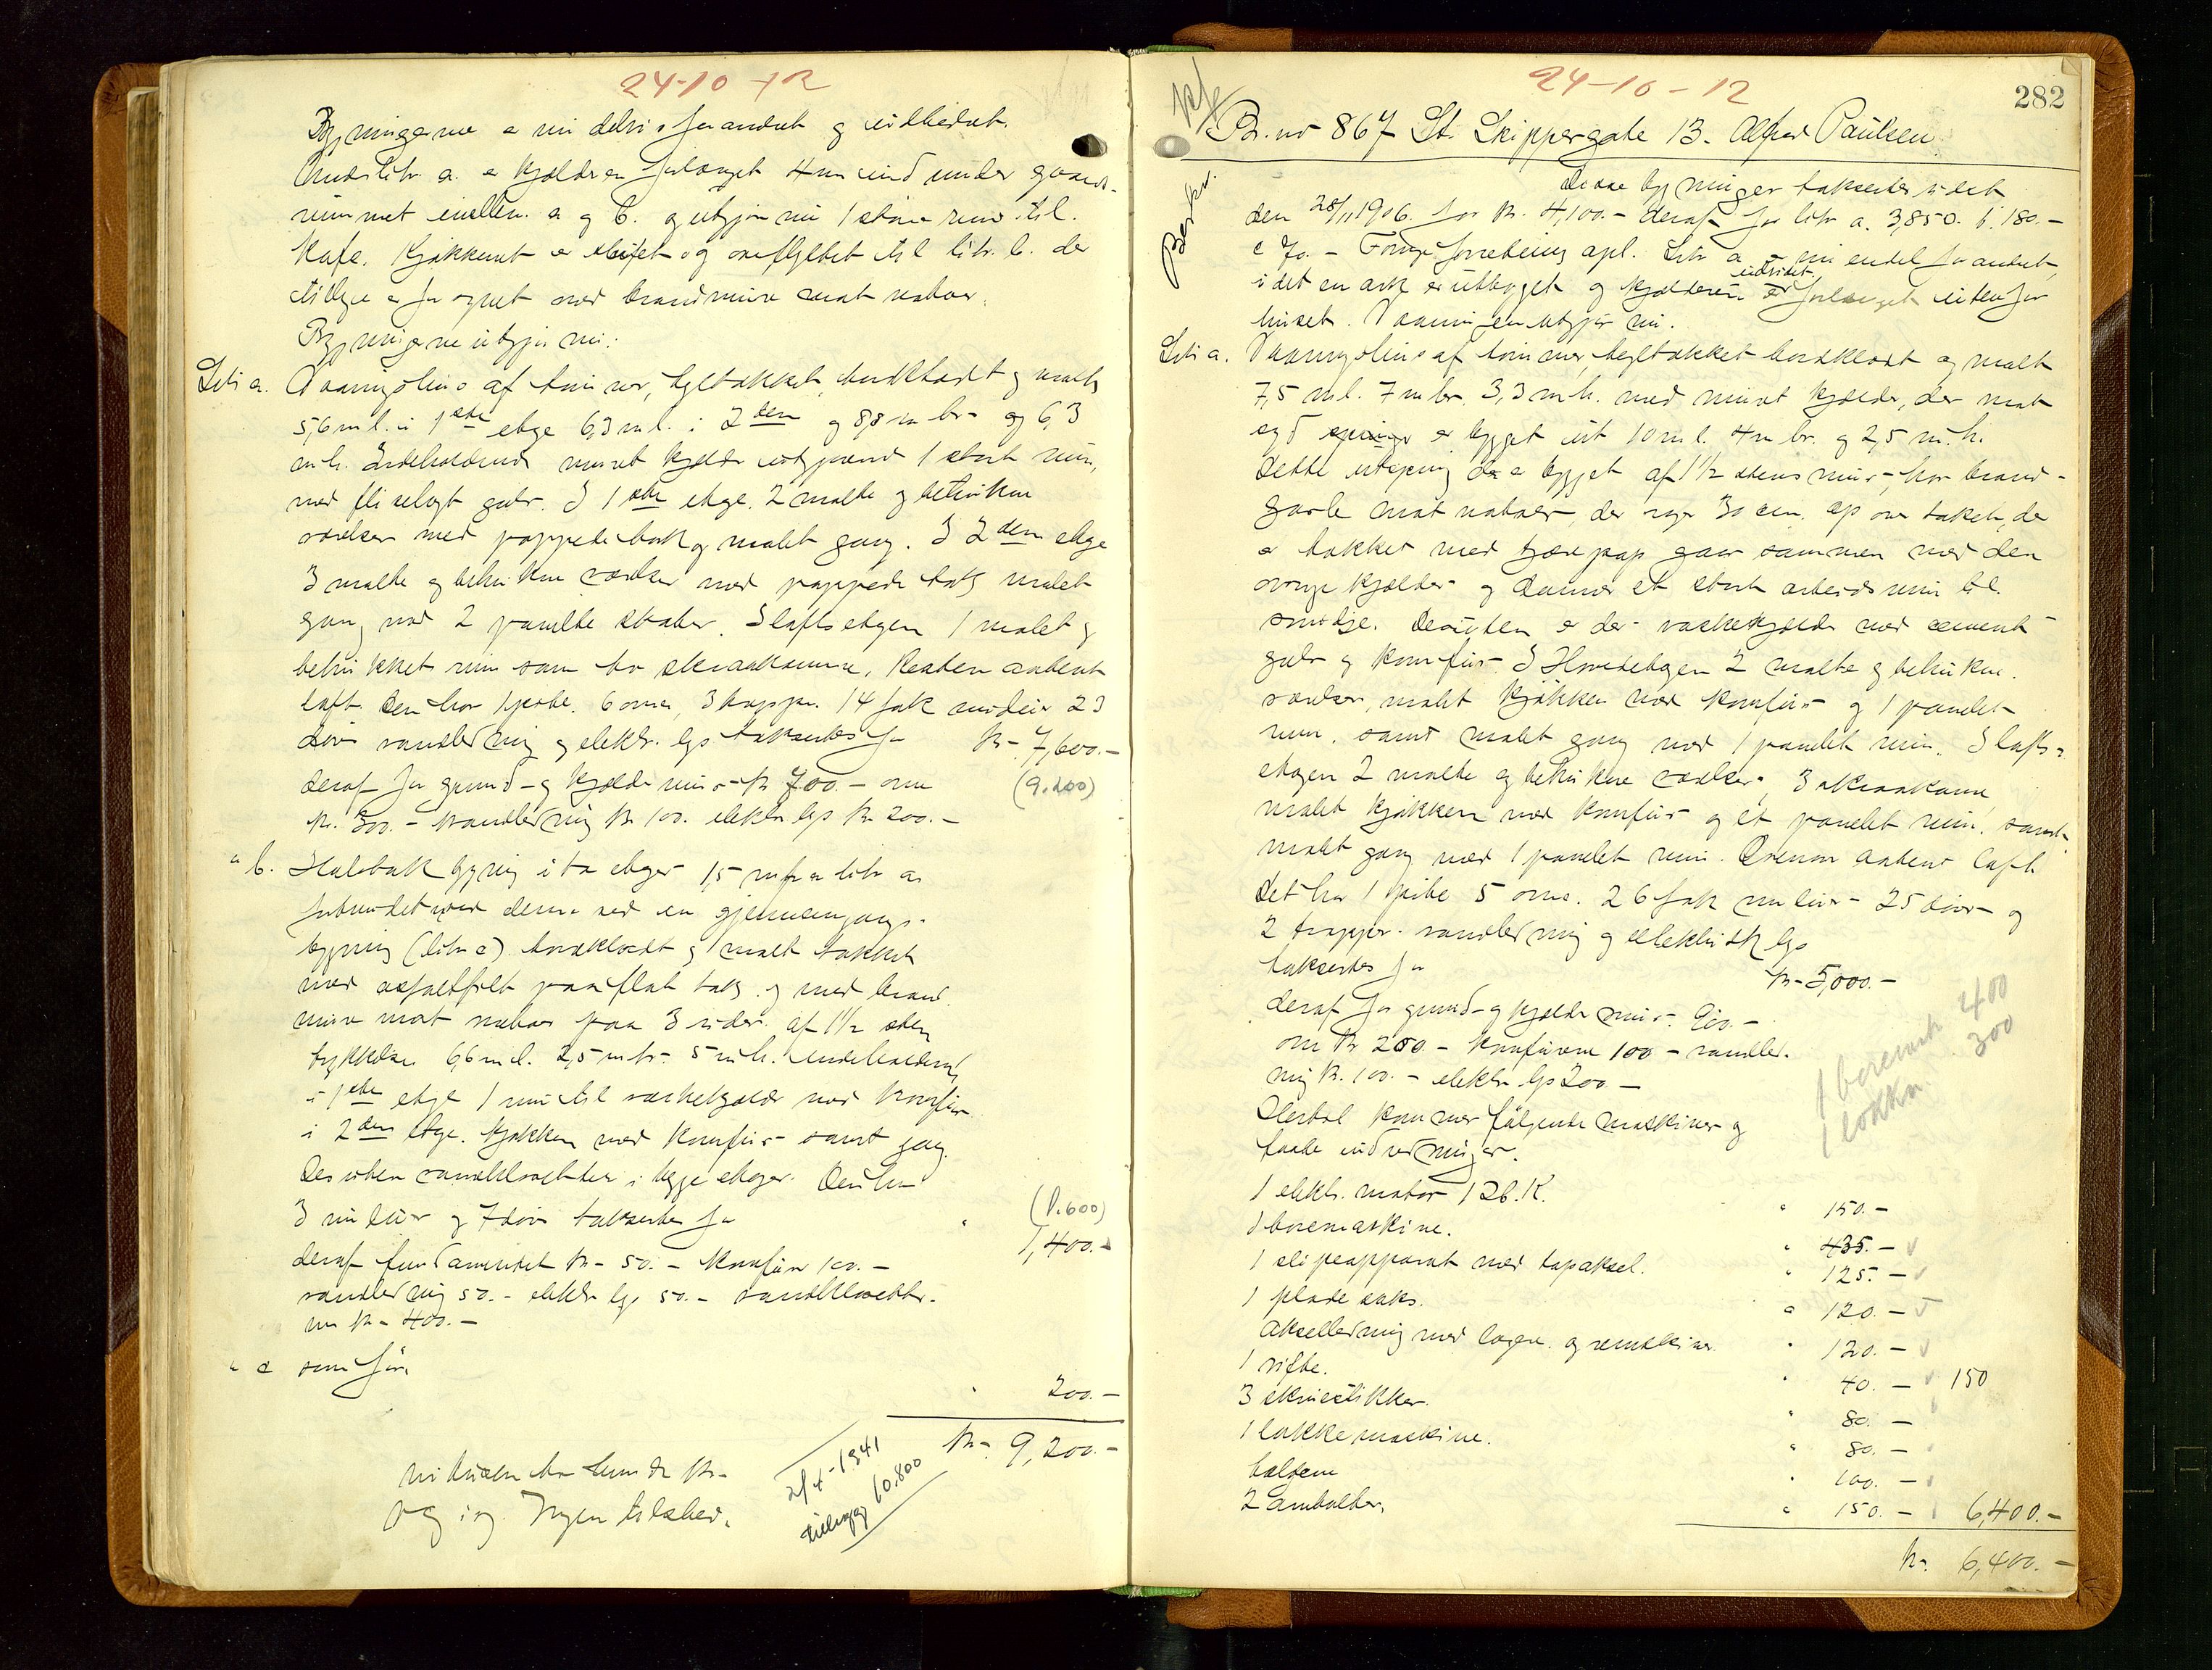 24-10-12
Bygningerne er nu delvis forandret og utbedret.
Under litr. a. er kjælderen forlænget 4 m ind under gaards-
rummet mellem a og b. og utgjør nu 1 større rum til
Kafe. Kjøkkenet er sløifet og overflyttet til litr. b. der
tillige er forsynet med brandmure mot naboer.
Bygningerne utgjør nu:
Litr. a. Vaaningshus af tømmer, tegltækket, bordklædt og malt
5,6 m l. i 1ste etage 6,3 m l. i 2den og 8,8 m br. og 6,3
m h. Indeholdende muret kjelder utgjørende 1 stort rum,
med fliselagt gulv. I 1ste etage. 2 malte og betrukne
værelser med pappede tak og malet gang. I 2den etage
3 malte og betrukne værelser med pappede tak malet
gang med 2 panelte skaber. I loftsetagen 1 malet og
betrukket rum samt to skraakamre. Resten aabent
loft. Den har 1 pibe. 6 ovne, 3 trapper. 14 fak vinduer 23
døre vandledning og elektr. lys takseres for kr. 7,600.-
deraf for grund- og kjældermur kr. 700.- ovne (9.200)
kr. 300.- vandledning kr. 100. elektr. lys kr. 200.-
" b. Halvtak bygning i to etager 1,5 m fra litr. a.
forbundet med denne ved en gjennemgangs-
bygning (litr. c) bordklædt og malt tækket
med asfaltfilt paa flat tak og med brand-
mure mot naboer paa 3 sider af 1½ sten
tykkelse 6,6 m l. 2,5 m br. 5 m h. indeholdende
i 1ste etage 1 rum til vaskekjælder med komfur
i 2den etage. kjøkken med komfur samt gang.
Desuten vandklosetter i begge etager. Den har
3 vinduer og 7 døre takseres for " (1.600)
1,400.-
deraf fundamentet kr. 50.- komfur 100.-
vandledning 50.- elektr. lys 50.- vandklosetter-
ne kr. 400.-
" c som før. " 200.-
kr. 9,200.-
og i og. Ingen tilsted.
2/4-1941
tillegg 10.800
24-10-12
282
Br. no 867 St. Skippergate 13. Alfred Paulsen.
Besk.
Disse bygninger takseredes sidst
den 28/11 1906. for kr. 4,100.- deraf for litr. a. 3,850. b. 180.-
c 70.- Forrige forretning opl. Litr. a er nu endel forandret,
idet en ark er utbygget og kjælderen er utvidet forlænget utenfor
huset. Vaaningen utgjør nu.
Litr a. Vaaningshus af tømmer, tegltækket bordklædt og malt
7,5 m l. 7 m br. 3,3 m h. med muret kjælder, der mot
syd er bygget ut 10 m l. 4 m br. og 2,5 m. h.
Dette utbygning der er bygget af 1½ stens mur, har brand-
gavle mot naboer, der rager 30 cm. op over taket, der
er tækket med tjærepap gaar sammen med den
øvrige kjælder og danner et stort arbeidsrum til
smedje. Desuten er der vaskekjælder med cement
gulv og komfur I Hovedetagen 2 malte og betrukne
værelser, malet kjøkken med komfur og 1 panelet
rum. samt malet gang med 1 panelt rum. I lofts-
etagen 2 malte og betrukne værelser, 3 skraakamre
malet kjøkken med komfur og et panelet rum. samt
malet gang med 1 panelet rum. Ovenom aabent loft
Det har 1 pibe 5 ovne. 26 fak vinduer 25 døre og
2 trapper. vandledning og elektrisk lys
takseres for kr. 5,000.-
deraf for grund- og kjældermur. 900.-
ovne kr 200.- komfurene 100.- vandled-
ning kr. 100.- elektr. lys 200.-
Hertil kommer følgende maskiner og
faste indretninger.
1 boremask 400
1 lokkm. 300
1 elektr. motor 1 2 h.K. " 150.-
1 boremaskine. " 435.-
1 slipeapparat med topaksel. " 125.-
1 plade saks. " 120.-
Akselledning med lagere og remskiver. " 120.-
1 vifte. " 40.- 150
3 skruestikker. " 80.-
1 lokkemaskine. " 80.-
bælgene " 100.-
2 ambolter. " 150.- 6,400.-
kr. 6,400.-